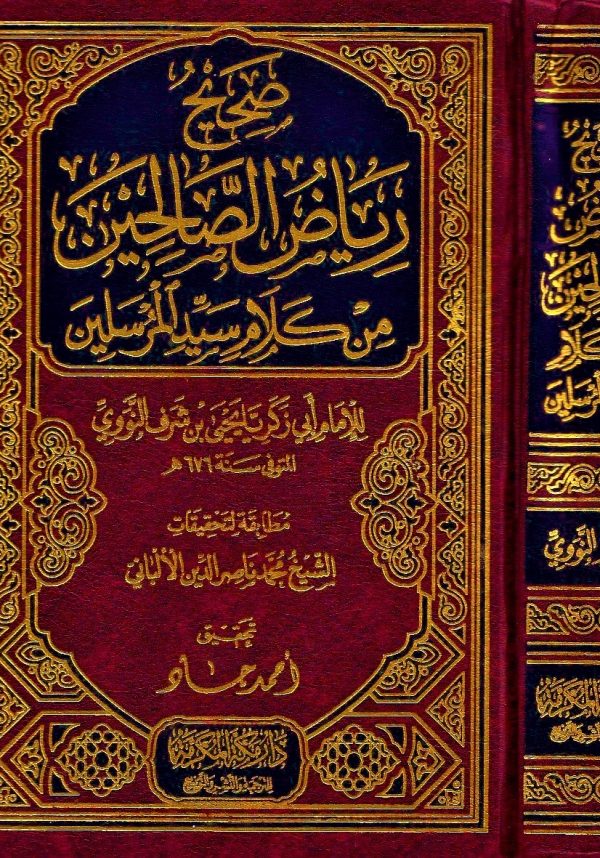 صَحِيحُ
رِيَاضُ الصَّالِحِينَ
مِنْ كَلَامِ سَيِّدِ الْمُرْسَلِينَ
للإمام أبي زكريا يحيى بن شرف النووي
المتوفى سنة ٦٧٦ هـ
مطابقة لتحقيقات
الشيخ محمد ناصر الدين الألباني
تحقيق
أحمد جاد
دار مكة المكرمة
للنشر والتوزيع
صحيح
رياض
الصالحين
كلام
المرسلين
النووي
المكرمة